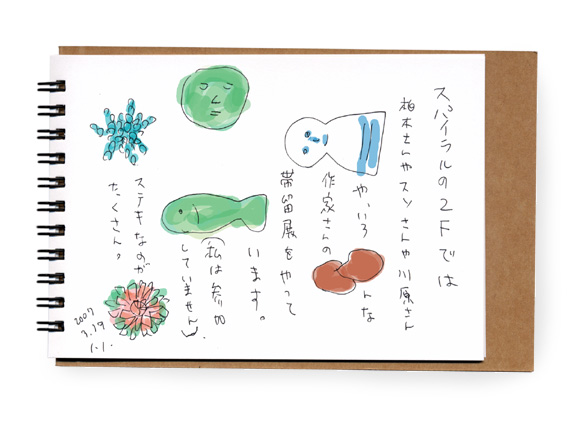 スパイラルの2Fでは
柏木さんやスソさんや川原さん
や、いろんな
作家さんの
帯留展をやって
います。
(私は参加
していません).
ステキなのが
たくさん。
2007
3.19